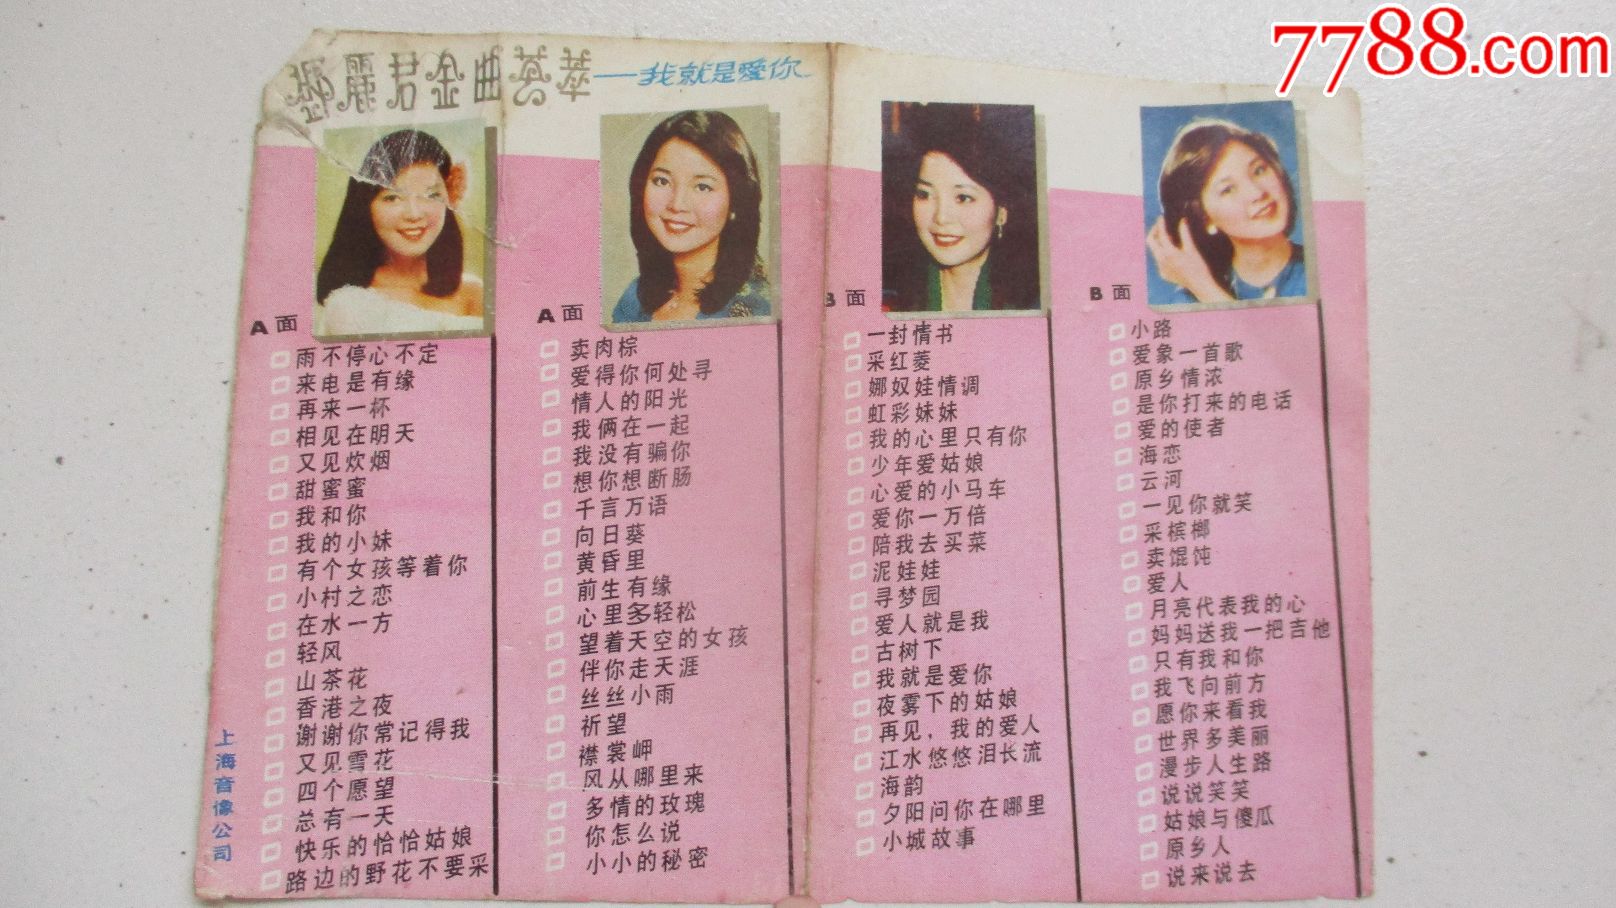 7788.com
鄧麗君金曲荟萃——我就是愛你
A面
雨不停心不定
来电是有缘
再来一杯
相见在明天
又见炊烟
甜蜜蜜
我和你
我的小妹
有个女孩等着你
小村之恋
在水一方
轻风
山茶花
香港之夜
谢谢你常记得我
又见雪花
四个愿望
总有一天
快乐的恰恰姑娘
路边的野花不要采
A面
卖肉棕
爱得你何处寻
情人的阳光
我俩在一起
我没有骗你
想你想断肠
千言万语
向日葵
黄昏里
前生有缘
心里多轻松
望着天空的女孩
伴你走天涯
丝丝小雨
祈望
襟裳岬
风从哪里来
多情的玫瑰
你怎么说
小小的秘密
B面
一封情书
采红菱
娜奴娃情调
虹彩妹妹
我的心里只有你
少年爱姑娘
心爱的小马车
爱你一万倍
陪我去买菜
泥娃娃
寻梦园
爱人就是我
古树下
我就是爱你
夜雾下的姑娘
再见，我的爱人
江水悠悠泪长流
海韵
夕阳问你在哪里
小城故事
B面
小路
爱象一首歌
原乡情浓
是你打来的电话
爱的使者
海恋
云河
一见你就笑
采槟榔
卖馄饨
爱人
月亮代表我的心
妈妈送我一把吉他
只有我和你
我飞向前方
愿你来看我
世界多美丽
漫步人生路
说说笑笑
姑娘与傻瓜
原乡人
说来说去
上海音像公司